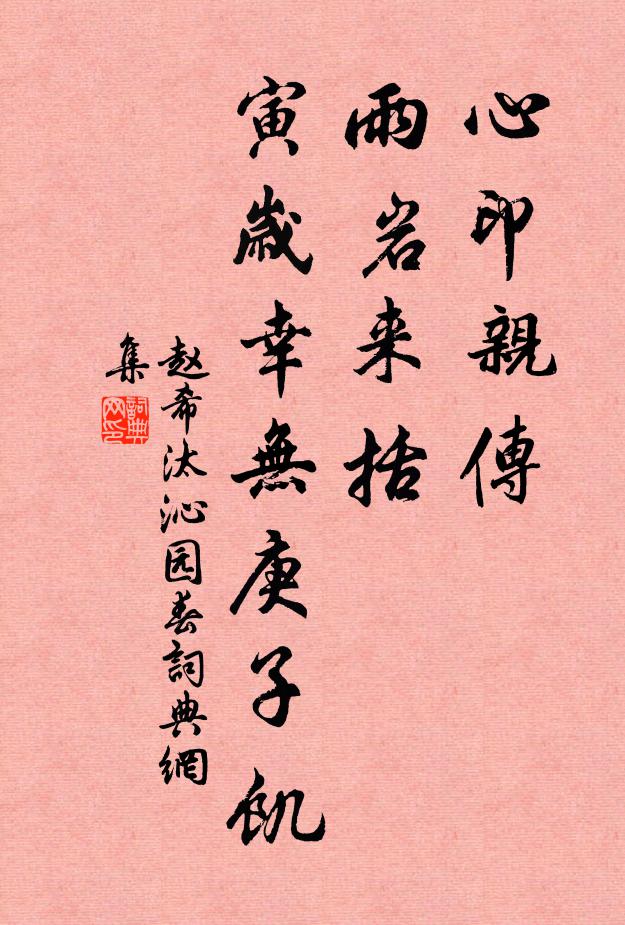 心印親傳
雨岩来括
寅歲幸無庚子飢
赵希汰沁园春詞典網
集
詞典网印